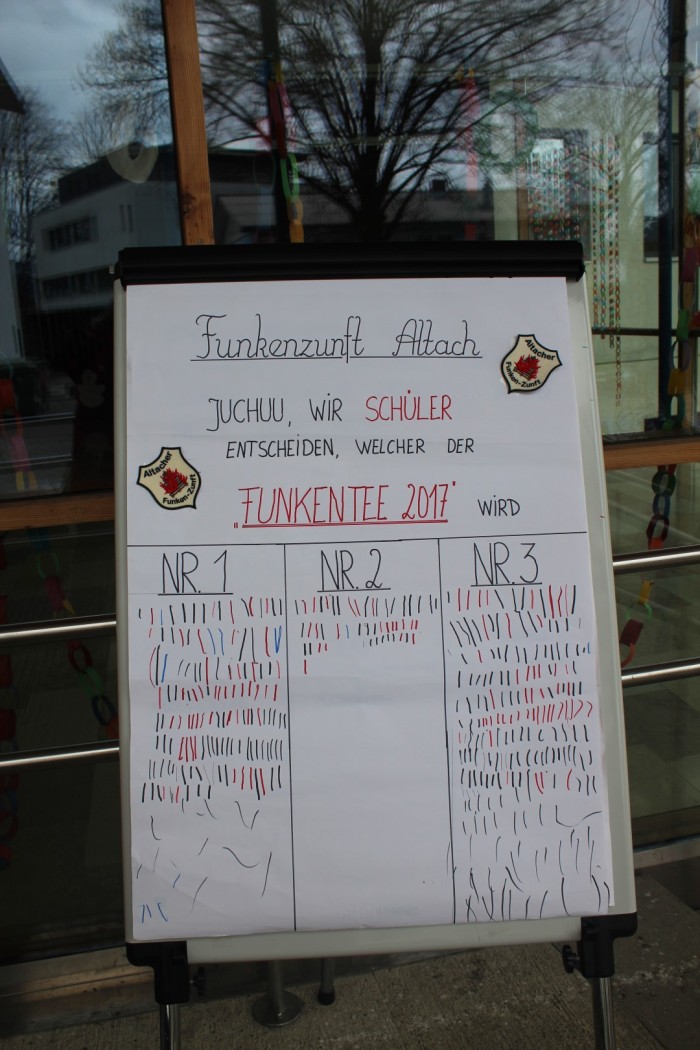 Funkenzunft Altach
Altacher
Funken-Zunft
JUCHUU, WIR SCHÜLER
ENTSCHEIDEN, WELCHER DER
Altacher
Funken-Zunft
„FUNKENTEE 2017" WIRD
NR. 1 NR. 2 NR. 3